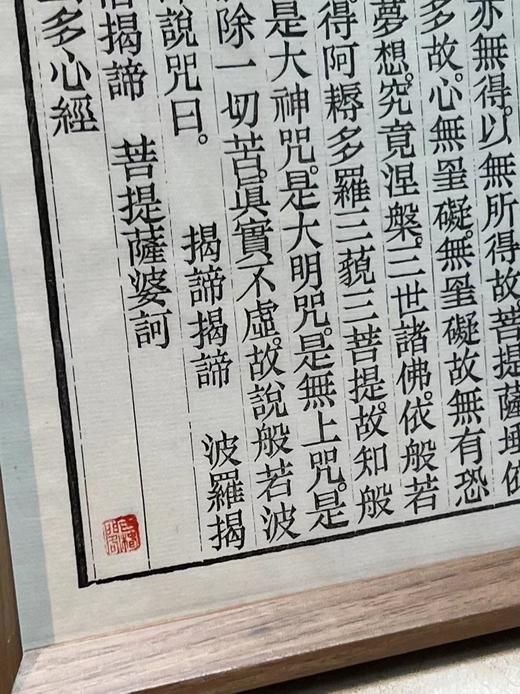 亦無得。以無所得故菩提薩埵依
多故。心無罣礙。無罣礙故無有恐
夢想。究竟涅槃。三世諸佛。依般若
得阿耨多羅三藐三菩提。故知般
是大神咒。是大明咒。是無上咒。是
除一切苦。眞實不虛。故說般若波
說咒曰。 揭諦揭諦 波羅揭
僧揭諦 菩提薩婆訶
多心經